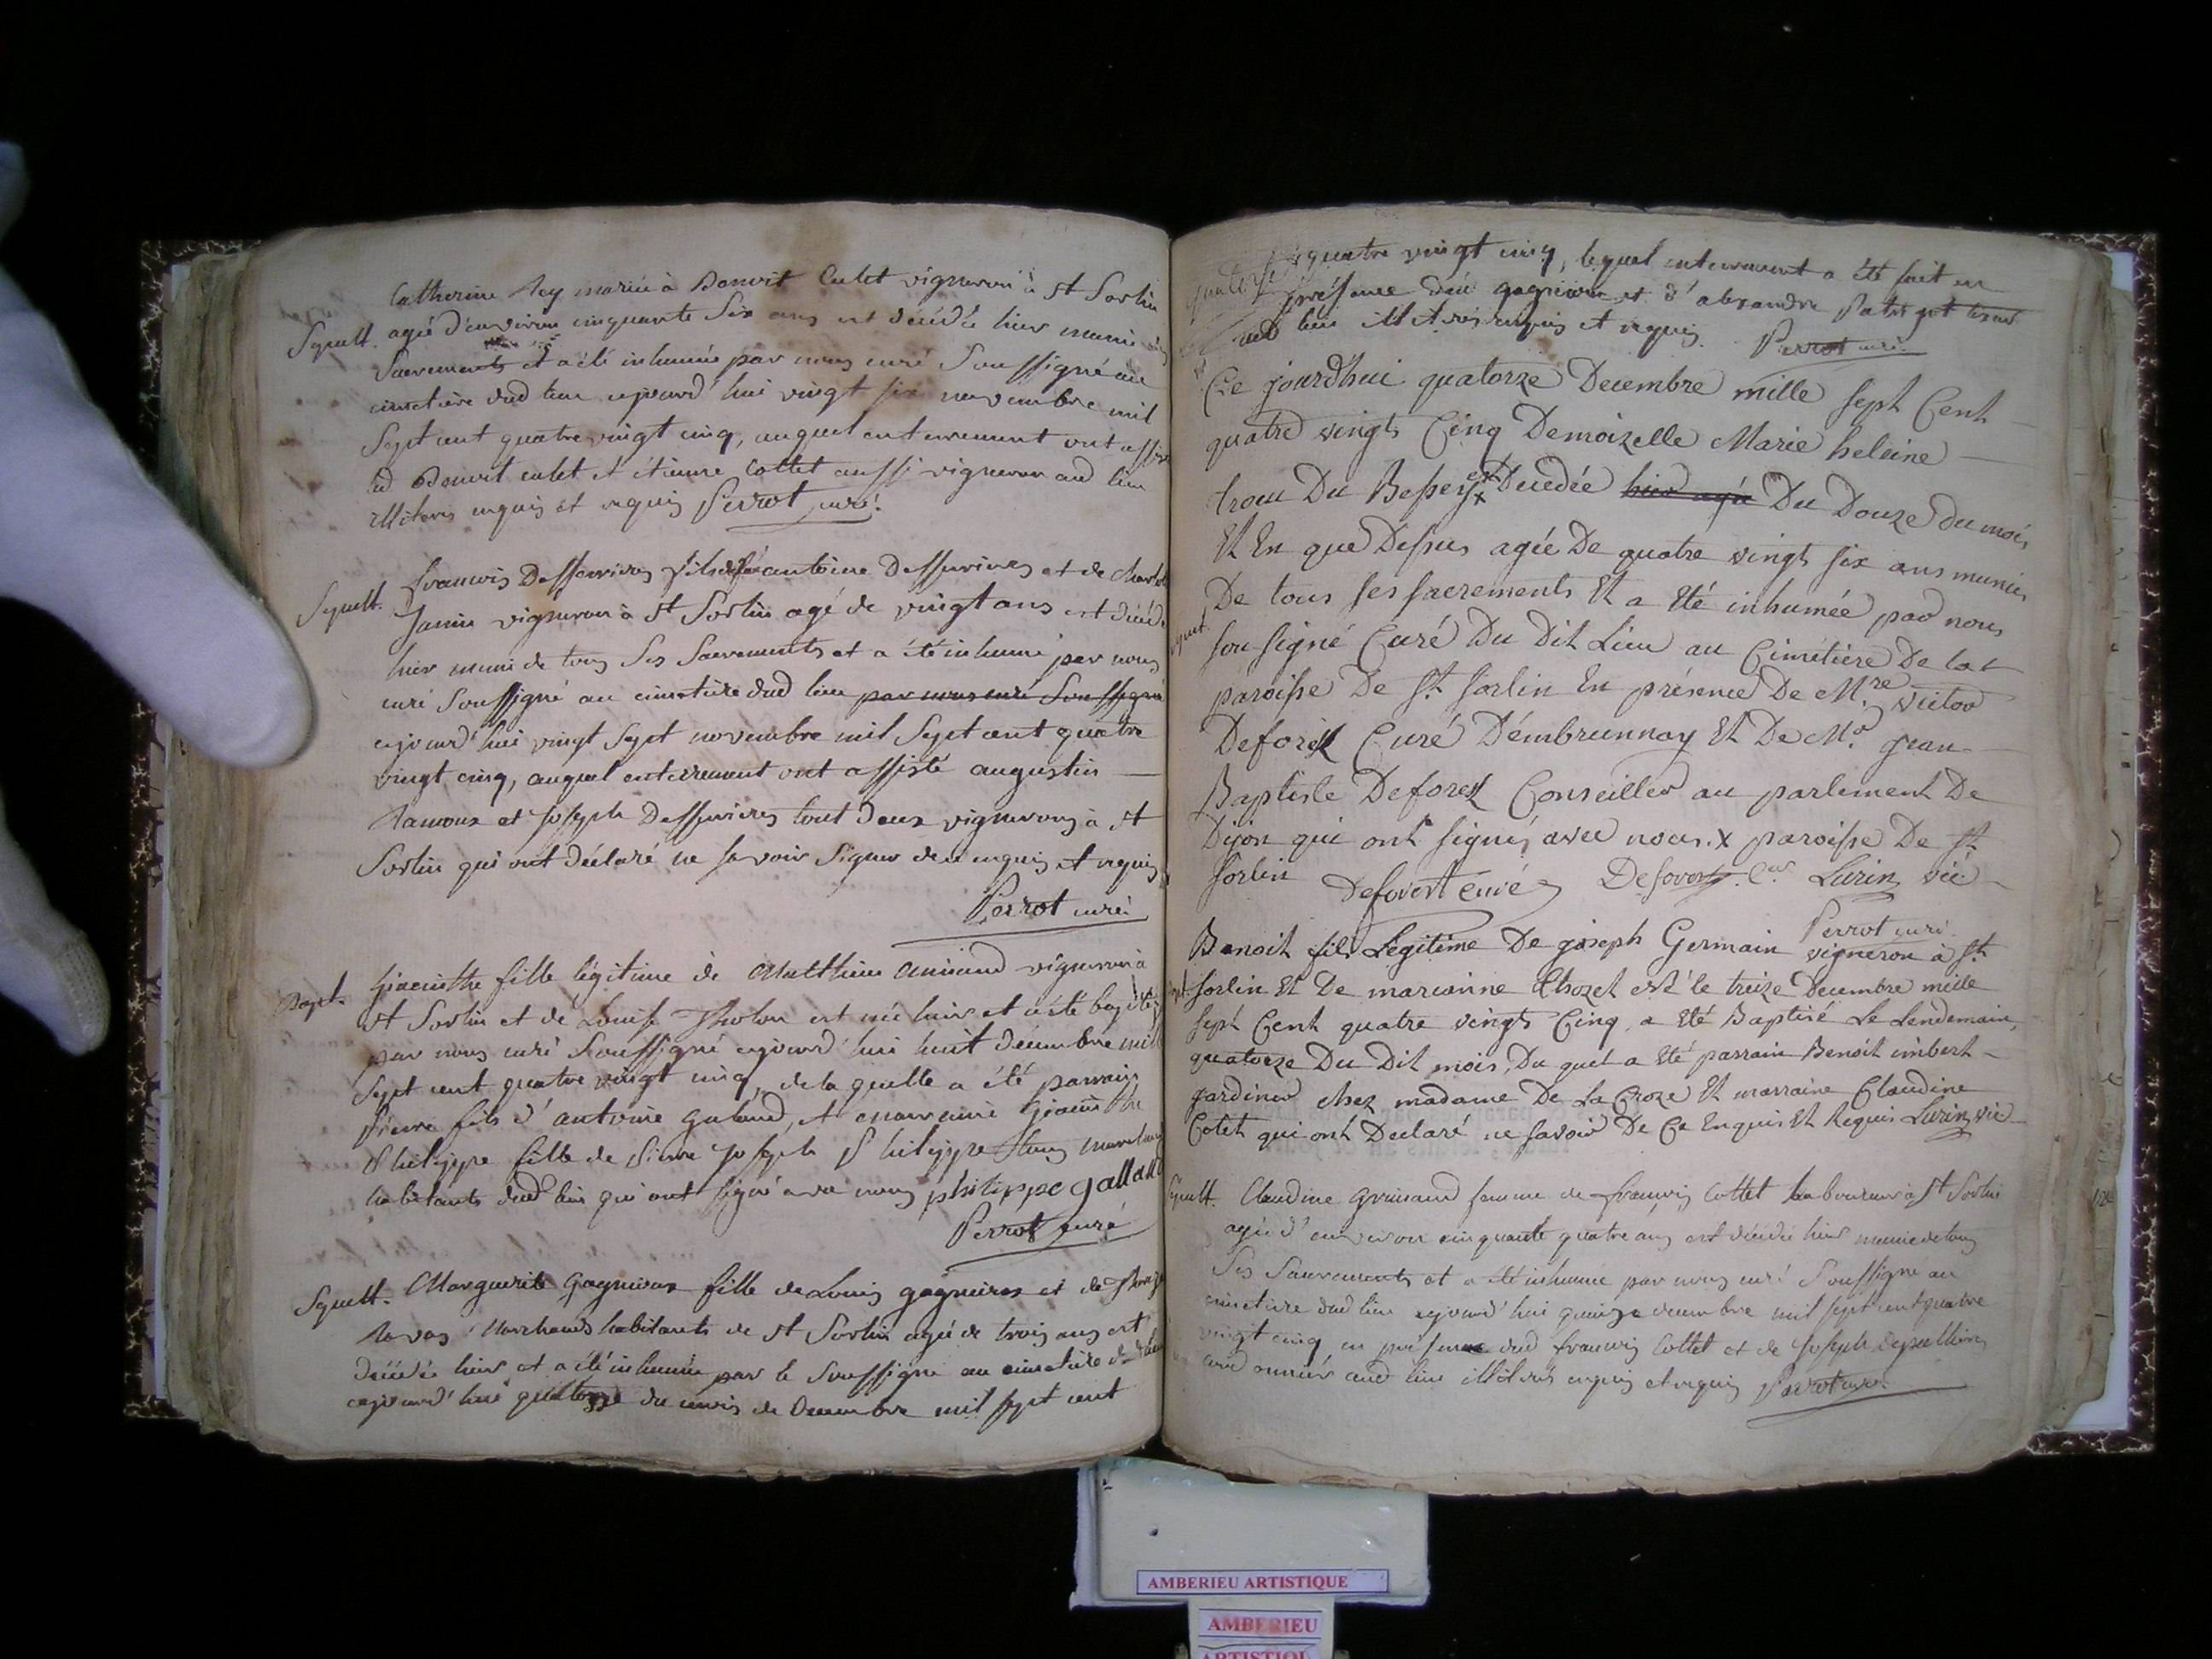 Catherine Rey mariée à Benoit Culet vigneron à St Sorlin
Sepult. agée d'environ cinquante six ans est décédée hier munie
Sacrements et a été inhumée par nous curé Soussigné au
cimetière dud lieu cejourd'hui vingt six novembre mil
Sept cent quatre vingt cinq, auquel enterrement ont assisté
led Benoit culet et étienne Collet aussi vigneron aud lieu
illiterés enquis et requis Perrot curé.
Sepult. francois Desservires fils de antoine Desservires et de
Janin vigneron à St Sorlin agé de vingt ans est décédé
hier muni de tous Ses Sacrements et a été inhumé par nous
curé Soussigné au cimetière dud lieu par nous curé Soussigné
cejourd'hui vingt Sept novembre mil Sept cent quatre
vingt cinq, auquel enterrement ont assisté augustin
Ramoux et Joseph Desservires tout deux vignerons à St
Sorlin qui ont déclaré ne savoir Signer de ce enquis et requis
Perrot curé
Bapt. hiacinthe fille légitime de Matthieu vigneron à
St Sorlin et de Louise Tholon est née hier et a été baptisée
par nous curé Soussigné cejourd'hui huit décembre mil
Sept cent quatre vingt cinq, de la quelle a été parrain
Pierre fils d'antoine galland, et marraine hiacinthe
Philippe fille de Pierre Joseph Philippe tous marchands
habitants dud lieu qui ont signé avec nous philippe galland
Perrot curé
Sepult. Marguerite Gagnieux fille de Louis gagnieres et de
Ravas Marchands habitants de St Sorlin agée de trois ans est
décédée hier et a été inhumée par le Soussigné au cimetière
cejourd'hui quatorze du mois de Decembre mil sept cent
quatre vingt cinq, lequel enterrement a été fait en
présence dud et d'alexandre
aud lieu illiterés enquis et requis. Perrot curé
Ce jourd'hui quatorze Decembre mille sept Cent
quatre vingts Cinq Demoizelle Marie heleine
trocu Du Bessey x est Decedée hier agée Du Douze du mois
Et En que Dessus agée De quatre vingt six ans munie
De tous ses sacrements Et a Eté inhumée par nous
sousigné Curé Du Dit Lieu au Cimétière De la
paroisse De St. Sorlin En présence De Mre. victor
Deforest Curé D'émbrunnay Et De Mr. jean
Baptiste Deforest Conseiller au parlement De
Dijon qui ont signés avec nous. x paroisse De St.
Sorlin Deforest curé Deforest Cer Lurin vié
Perrot curé
Benoit fils Légitime De joseph Germain vigneron à St
Sorlin Et De marianne Chozet est né le treize Decembre mille
sept Cent quatre vingts Cinq, a Eté Baptisé Le Lendemain,
quatorze Du Dit mois, Du quel a Eté parrain Benoit imbert
jardinier chez madame De La Croze Et marraine Claudine
Colet qui ont Declaré ne savoir De Ce Enquis Et Requis Lurin vié
Sepult. Claudine Grinand femme de francois Collet laboureur à St Sorlin
agée d'environ cinquante quatre ans est décédée hier munie de tous
Ses Sacrements et a été inhumée par nous curé Soussigné au
cimetière dud lieu cejourd'hui quinze decembre mil sept cent quatre
vingt cinq en présence dud francois Collet et de Joseph
cordonnier aud lieu illiterés enquis et requis Perrot curé.
AMBERIEU ARTISTIQUE
AMBERIEU
ARTISTIQUE